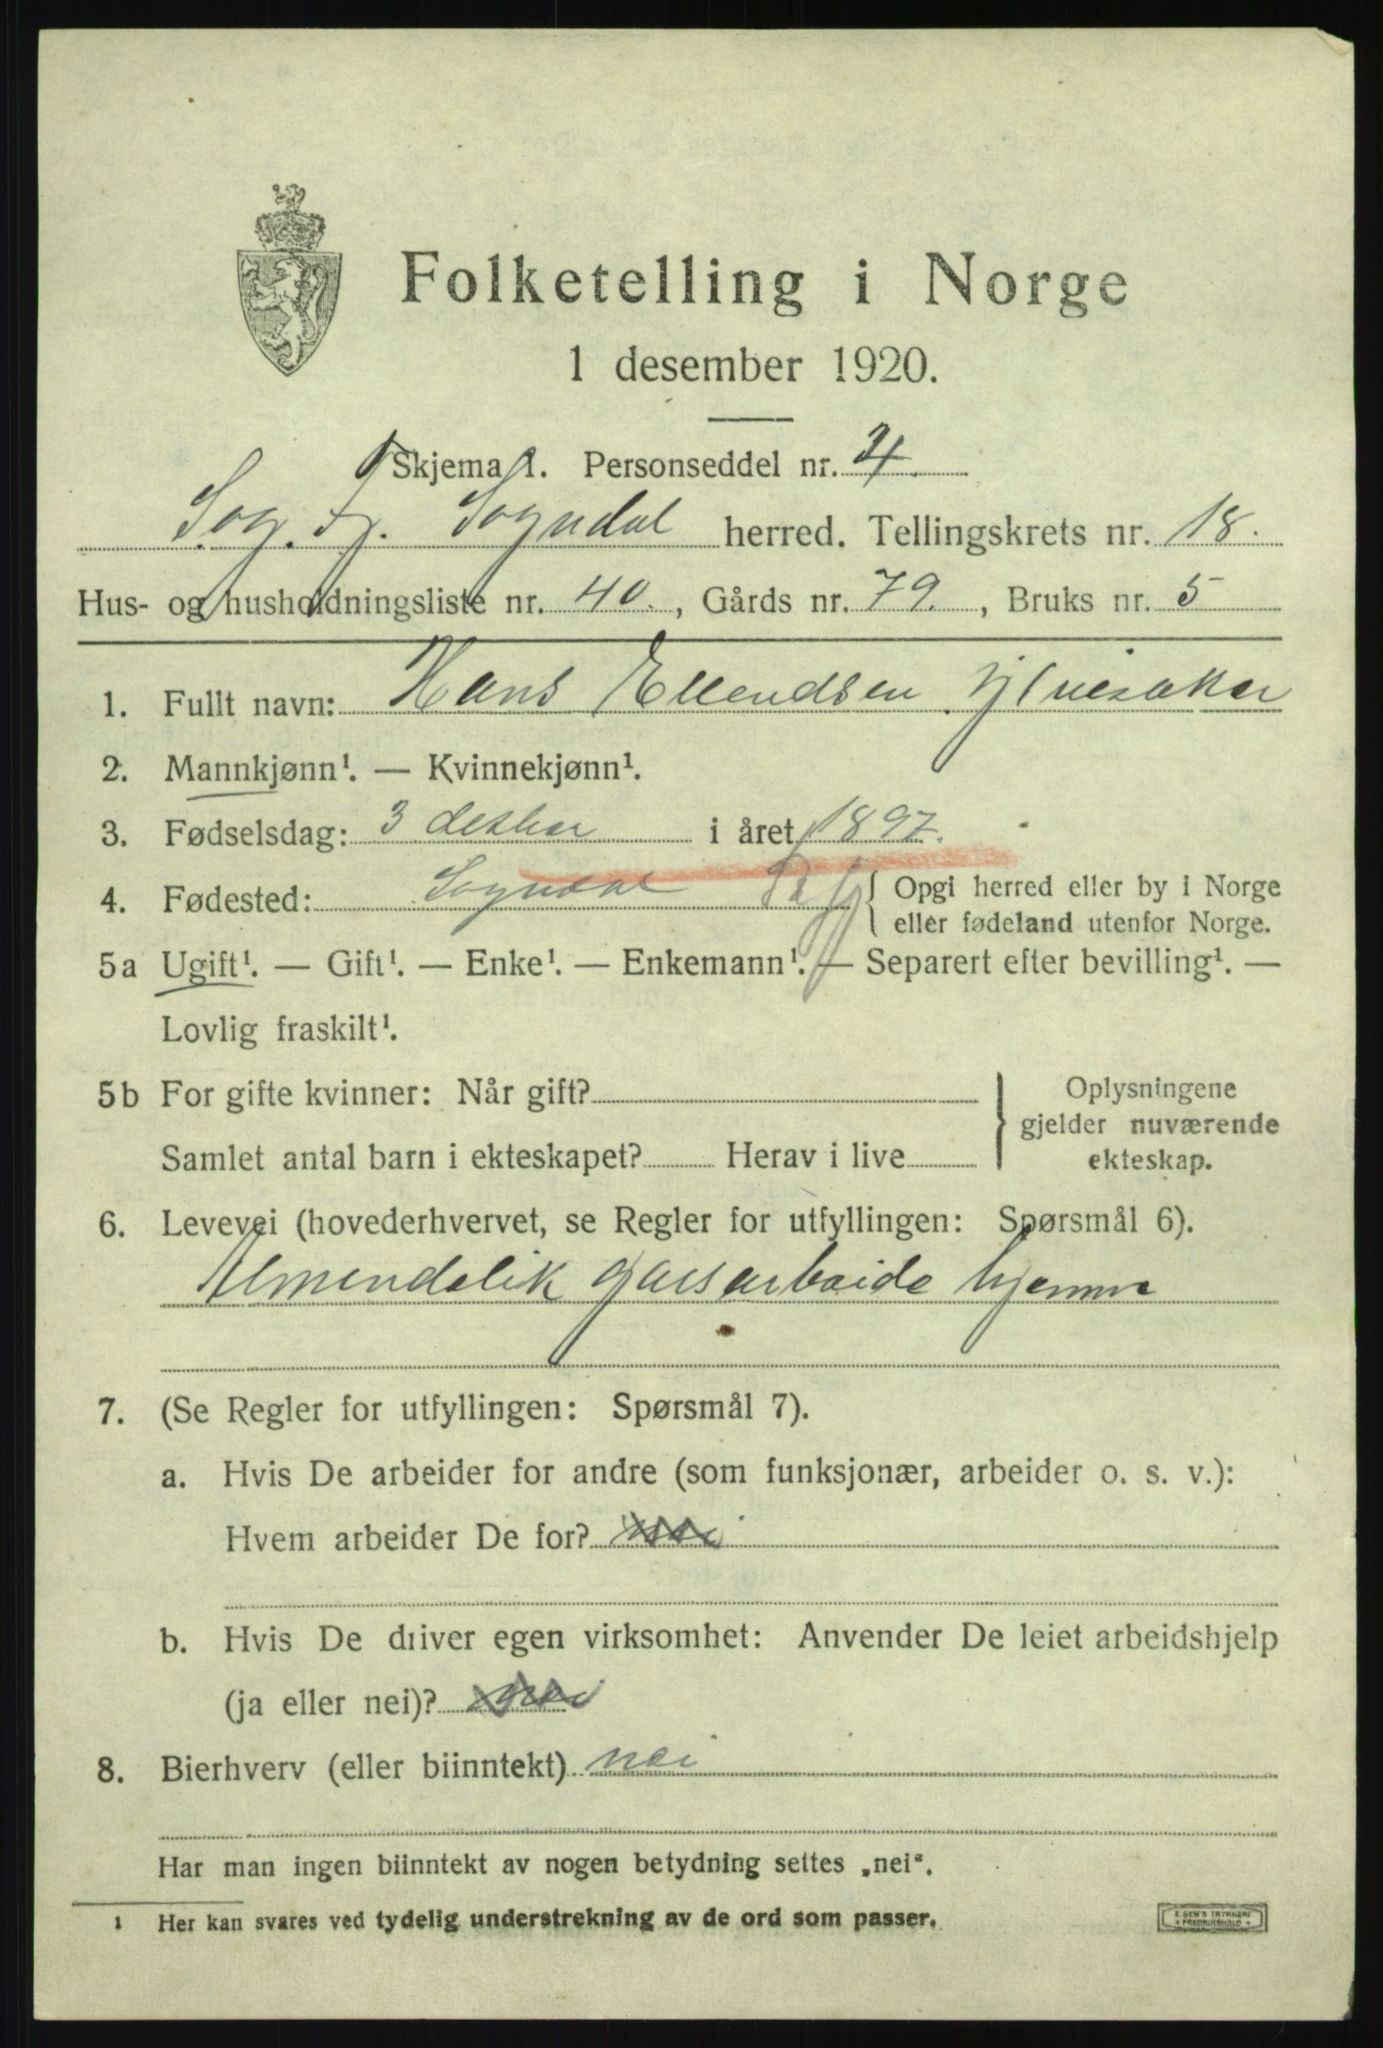 Folketelling i Norge
1 desember 1920.
Skjema 1. Personseddel nr. 4.
Sog. Fj. Sogndal herred. Tellingskrets nr. 18.
Hus- og husholdningsliste nr. 40., Gårds nr. 79., Bruks nr. 5
1. Fullt navn: Hans Ellendsen
2. Mannkjønn¹. — Kvinnekjønn¹.
3. Fødselsdag: 3 desbar i året 1897.
4. Fødested: Sogndal { Opgi herred eller by i Norge
eller fødeland utenfor Norge.
5a Ugift¹. — Gift¹. — Enke¹. — Enkemann¹. — Separert efter bevilling¹. —
Lovlig fraskilt¹.
5b For gifte kvinner: Når gift? } Oplysningene
gjelder nuværende
Samlet antal barn i ekteskapet? Herav i live ekteskap.
6. Levevei (hovederhvervet, se Regler for utfyllingen: Spørsmål 6).
Almendelik garsarbeide hjemme
7. (Se Regler for utfyllingen: Spørsmål 7).
a. Hvis De arbeider for andre (som funksjonær, arbeider o. s. v.):
Hvem arbeider De for? nei
b. Hvis De driver egen virksomhet: Anvender De leiet arbeidshjelp
(ja eller nei)? nei
8. Bierhverv (eller biinntekt) nei
Har man ingen biinntekt av nogen betydning settes „nei“.
¹ Her kan svares ved tydelig understrekning av de ord som passer.
E. SEM'S TRYKKERI
FREDRIKSHALD